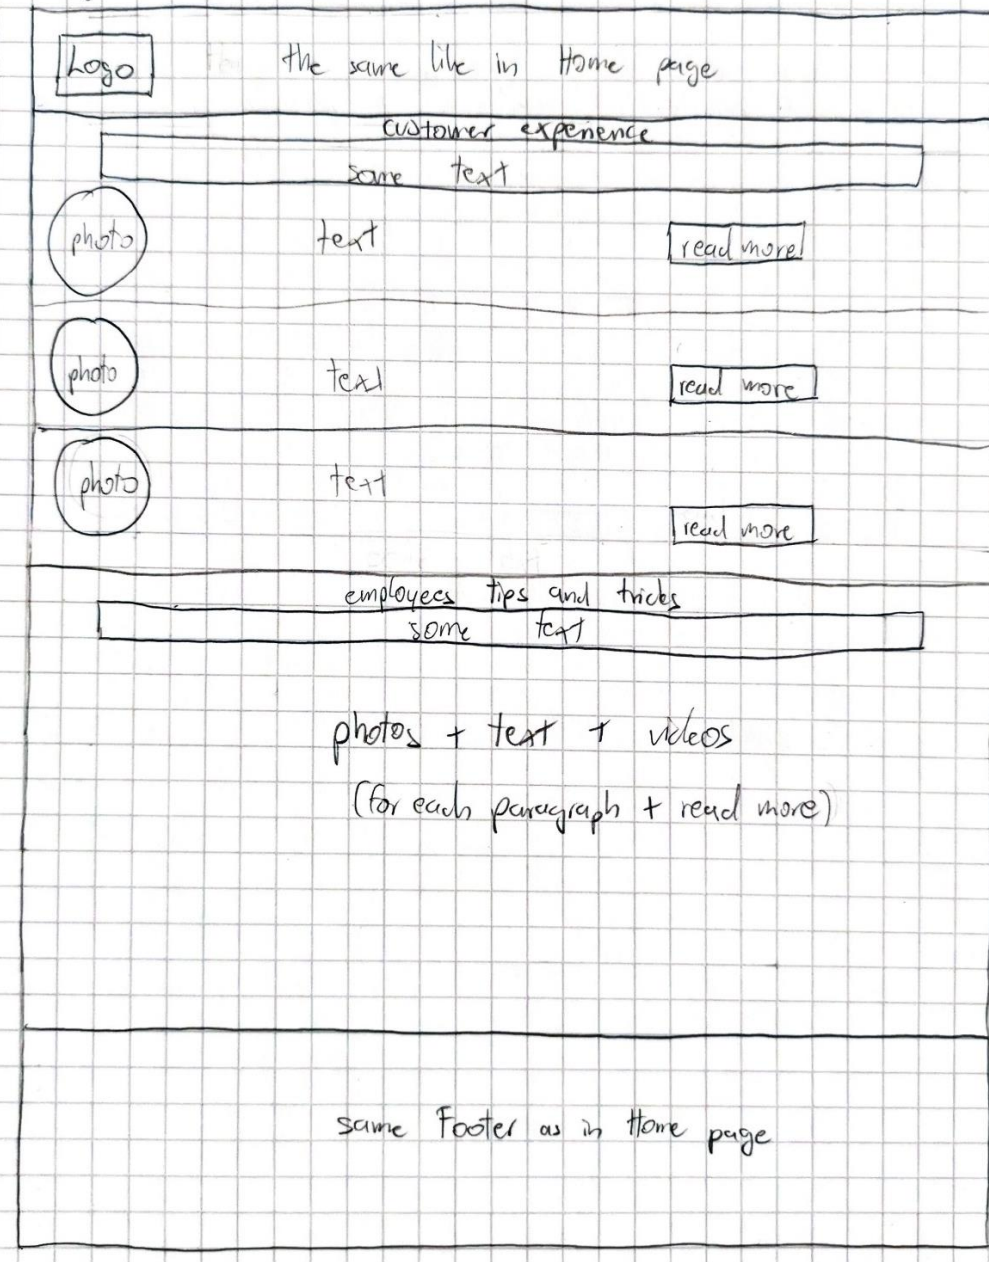 Logo
the same like in Home page
customer experience
some text
photo
text
read more
photo
text
read more
photo
text
read more
employees tips and tricks
some text
photos + text + videos
(for each paragraph + read more)
same Footer as in Home page